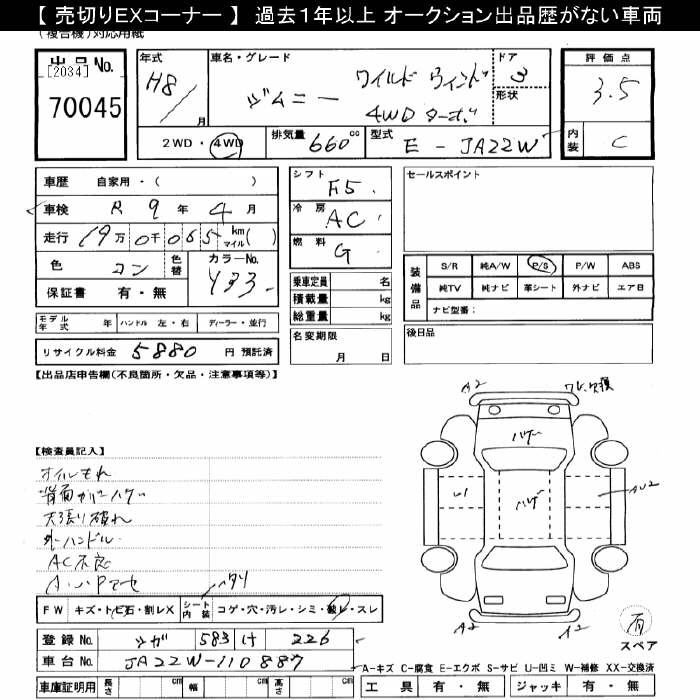 【 売切りEXコーナー 】 過去１年以上 オークション出品歴がない車両
(複合機)対応用紙
出品No.
[2034]
70045
年式 H8/ 月
車名・グレード
ジムニー ワイルド ウィンド
4WD ターボ
ドア 3
形状
2WD・4WD
排気量 660 cc
型式 E - JA22W
評価点
3.5
内装 C
車歴 自家用・( )
車検 R 9 年 4 月
走行 19万0千065 km マイル( )
色 コン 色替
カラーNo. Y33
保証書 有・無
シフト F5
冷房 AC
燃料 G
乗車定員 名
積載量 kg
総重量 kg
名変期限
月 日
セールスポイント
装備品 S/R 純A/W P/S P/W ABS
純TV 純ナビ 革シート 外ナビ エア日
ナビ型番：
後日品
モデル年式 年 ハンドル 左・右 ディーラー・並行
リサイクル料金 5880 円 預託済
【出品店申告欄(不良箇所・欠品・注意事項等)】
【検査員記入】
オイルもれ
背面カバーハゲ
天張り破れ
外ハンドル
AC不良
FW キズ・トビ石・割レX シート内装 コゲ・穴・汚レ・シミ・破レ・スレ
ヘタリ
登録No. ツガ 583 け 226
車台No. JA22W-110887
車庫証明用 長さ cm 幅 cm 高さ cm
A2
ハゲ
ハゲ
U1
AU2
A2
A2
有
スペア
A-キズ C-腐食 E-エクボ S-サビ U-凹ミ W-補修 XX-交換済
工具 有・無 ジャッキ 有・無